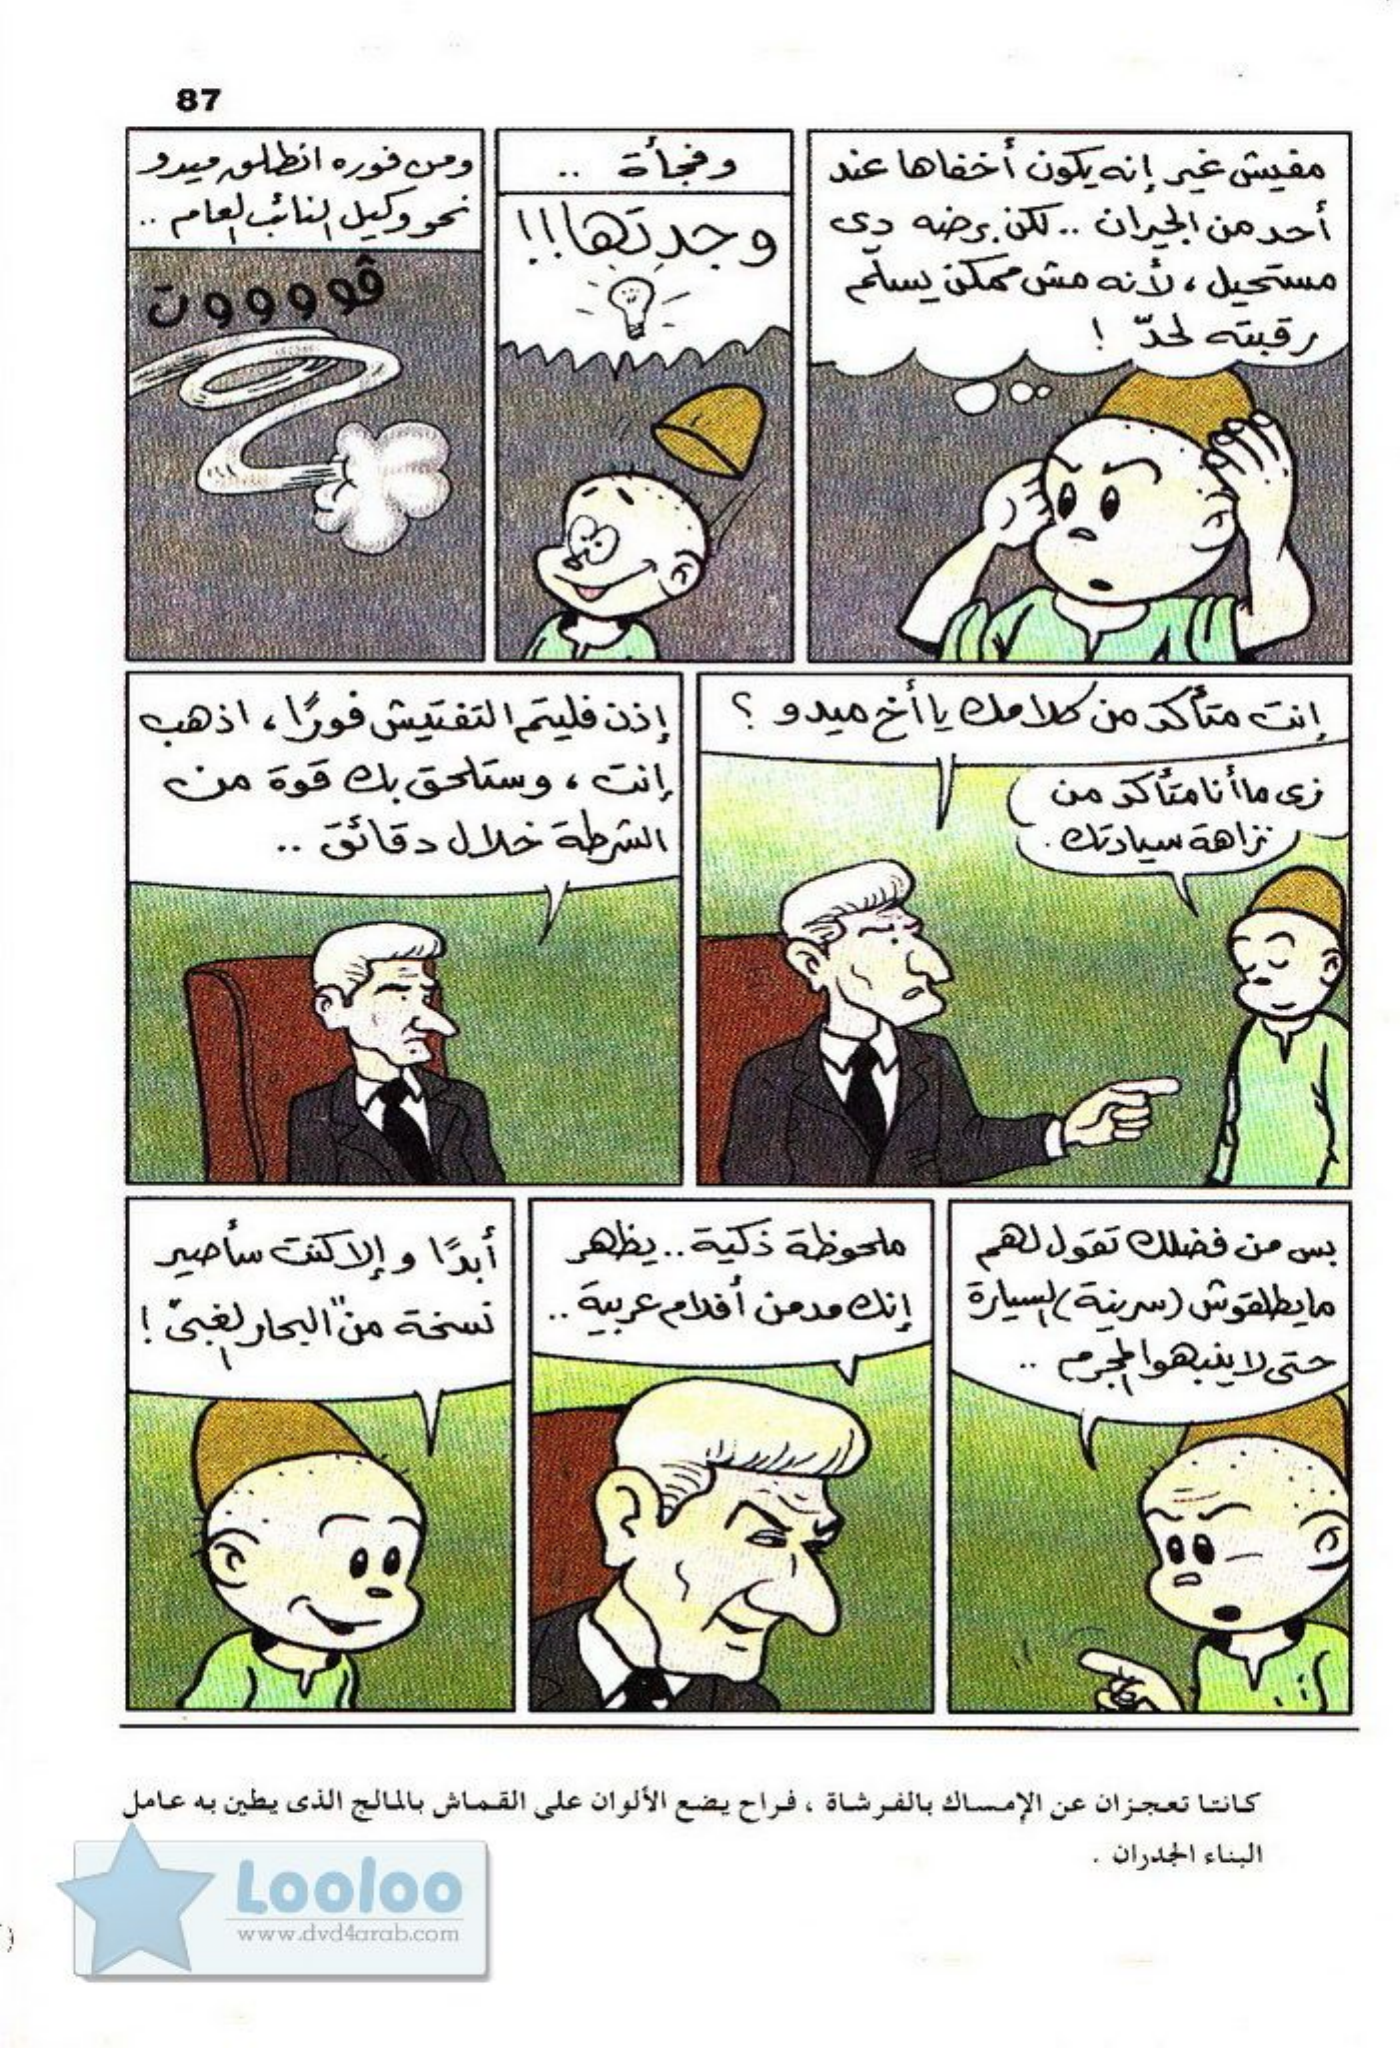 87
مفيش غير إنه يكون أخفاها عند
أحد من الجيران .. لكن برضه دى
مستحيل ، لأنه مش ممكن يسلّم
رقبته لحدّ !
وفجأة ..
وجدتها!!!
ومن فوره انطلق ميدو
نحو وكيل النائب العام ..
ڤووووت
إنت متأكد من كلامك يا أخ ميدو ؟
زى ما أنا متأكد من
نزاهة سيادتك .
إذن فليتم التفتيش فورًا ، اذهب
إنت ، وستلحق بك قوة من
الشرطة خلال دقائق ..
بس من فضلك تقول لهم
مايطلقوش (سرينة) السيارة
حتى لا ينبهوا المجرم ..
ملحوظة ذكية .. يظهر
إنك مدمن أفلام عربية ..
أبدًا وإلا كنت سأصير
نسخة من "البحار الغبى" !
كانتا تعجزان عن الإمساك بالفرشاة ، فراح يضع الألوان على القماش بالمالج الذى يطين به عامل
البناء الجدران .
Looloo
www.dvd4arab.com